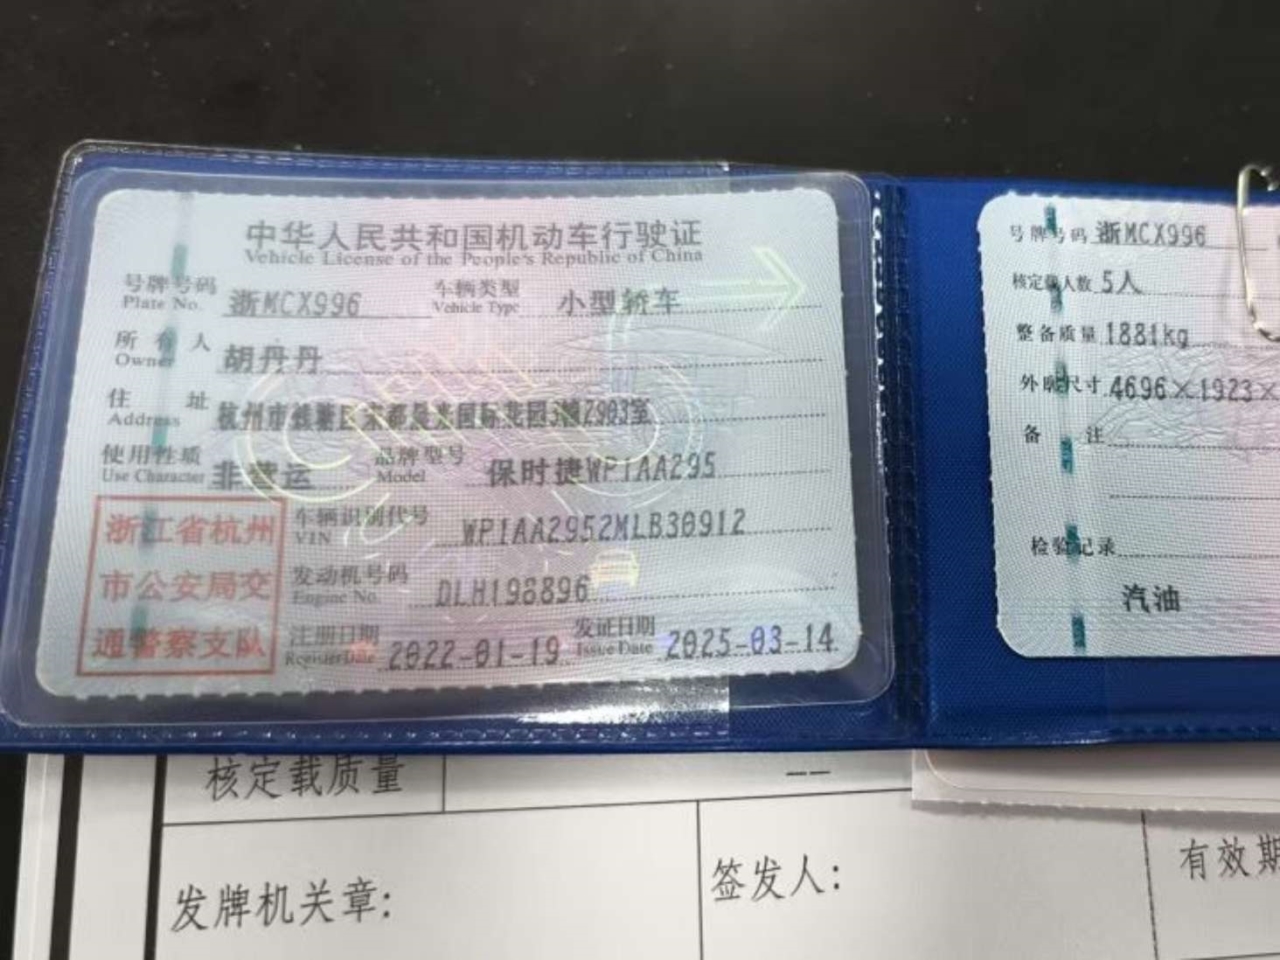 中华人民共和国机动车行驶证
Vehicle License of the People's Republic of China
号牌号码 浙MCX996 车辆类型 小型轿车
Plate No. Vehicle Type
所有人 胡丹丹
Owner
住址
Address
使用性质 非营运 品牌型号 保时捷WP1AA295
Use Character Model
浙江省杭州
市公安局交
通警察支队
车辆识别代号 WP1AA2952MLB30912
VIN
发动机号码 DLH198896
Engine No.
注册日期 2022-01-19 发证日期 2025-03-14
Register Date Issue Date
号牌号码 浙MCX996
核定载人数 5人
整备质量 1881kg
外廓尺寸 4696×1923×
备注
检验记录
汽油
核定载质量 --
发牌机关章:
签发人:
有效期